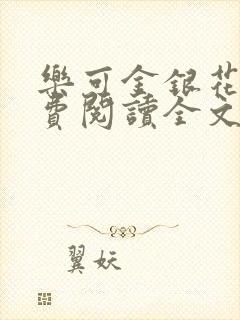 樂可金銀花
費閱讀全文
翼妖